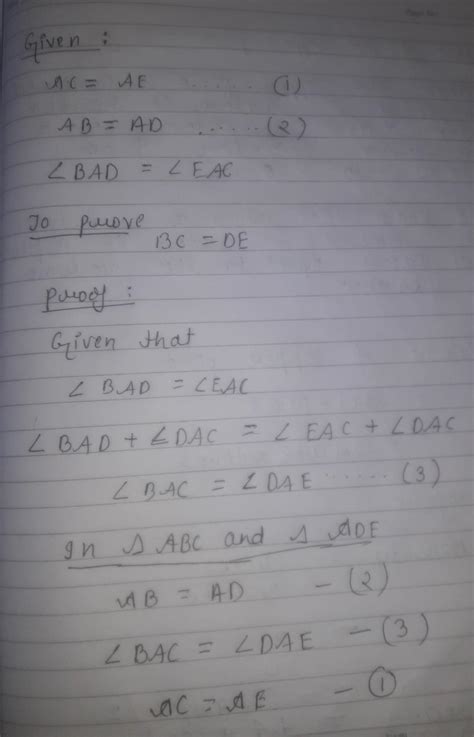 Given :
AC = AE ...... (1)
AB = AD ...... (2)
∠BAD = ∠EAC
To prove
BC = DE
Proof :
Given that
∠BAD = ∠EAC
∠BAD + ∠DAC = ∠EAC + ∠DAC
∠BAC = ∠DAE ...... (3)
In Δ ABC and Δ ADE
AB = AD - (2)
∠BAC = ∠DAE - (3)
AC = AE - (1)